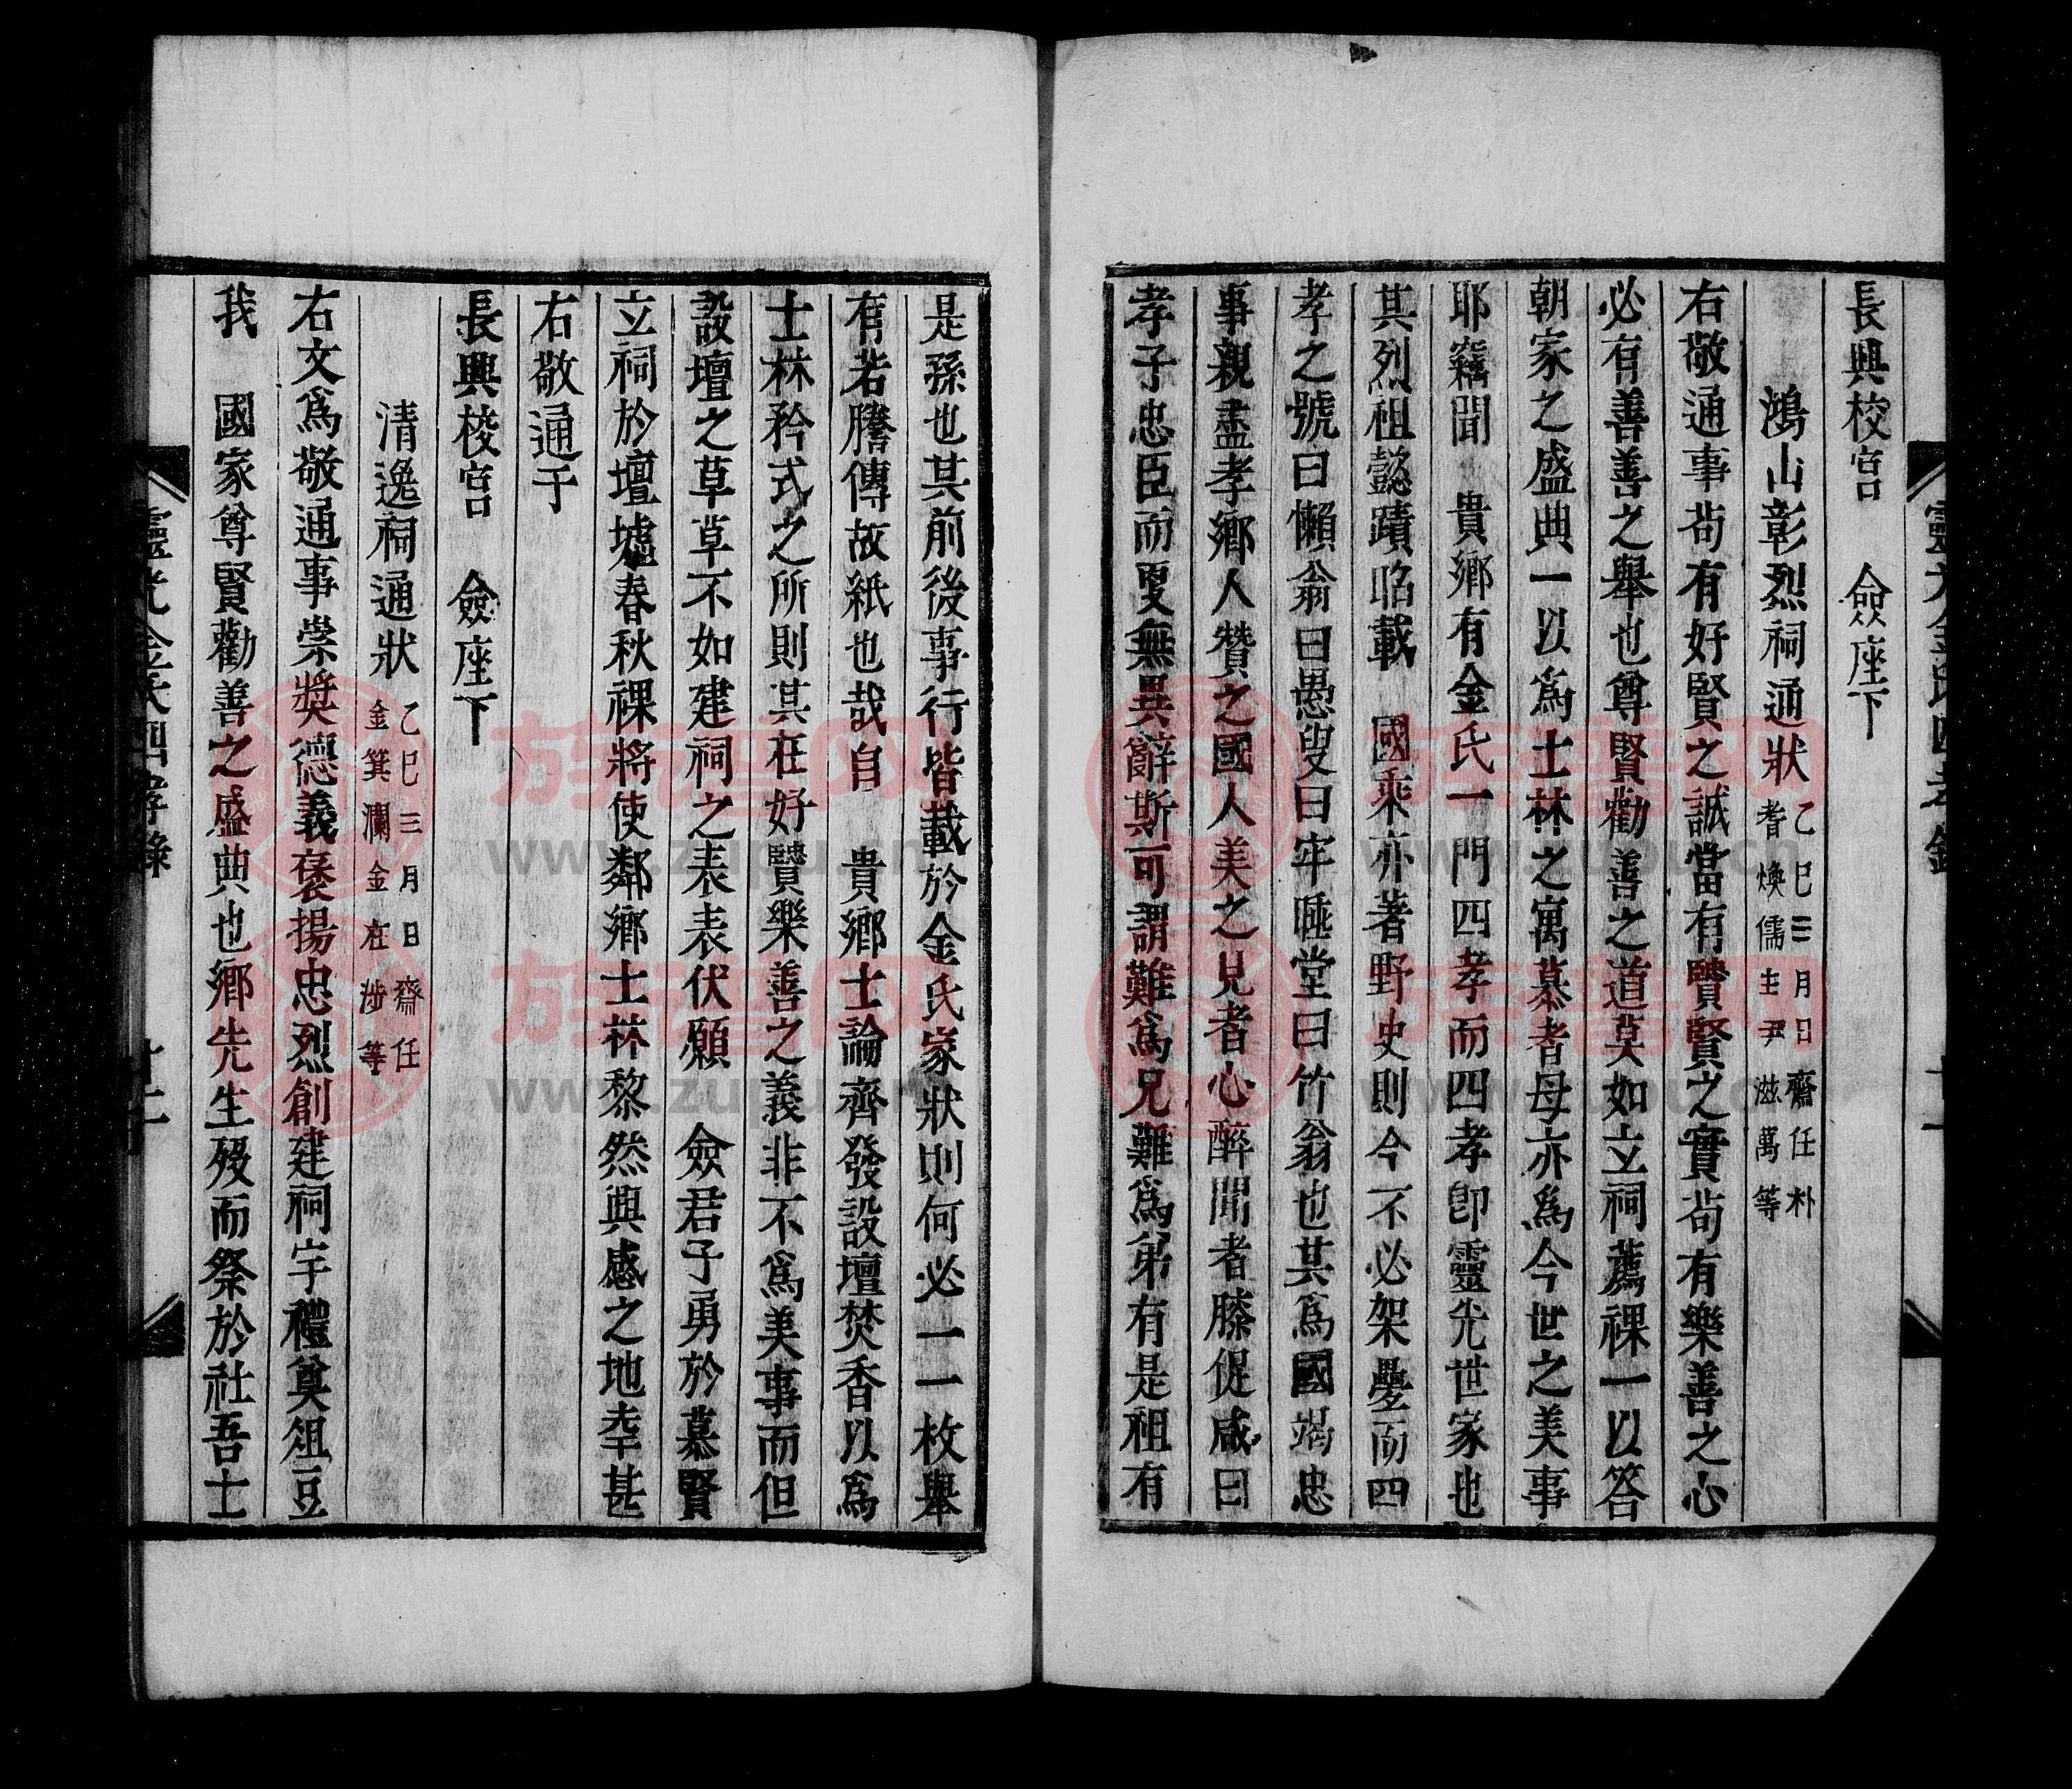 長興校宮　僉座下
鴻山彰烈祠通狀 乙巳三月日齋任朴耆煥儒生尹滋萬等
右敬通事苟有好賢之誠當有賢賢之實苟有樂善之心
必有善善之舉也尊賢勸善之道莫如立祠薦祼一以答
朝家之盛典一以爲士林之寓慕者毋亦爲今世之美事
耶竊聞　貴鄉有金氏一門四孝而四孝卽靈光世家也
其烈祖懿蹟昭載　國乘亦著野史則今不必架疊而四
孝之號曰懶翁曰愚叟曰牢睡堂曰竹翁也其爲國竭忠
事親盡孝鄉人贊之國人美之見者心醉聞者膝促咸曰
孝子忠臣而更無異辭斯可謂難爲兄難爲弟有是祖有
是孫也其前後事行皆載於金氏家狀則何必一一枚舉
有若謄傳故紙也哉自　貴鄉士論齊發設壇焚香以爲
士林矜式之所則其在好賢樂善之義非不爲美事而但
設壇之草草不如建祠之表表伏願　僉君子勇於慕賢
立祠於壇墟春秋祼將使鄰鄉士林黎然興感之地幸甚
右敬通于
長興校宮　僉座下
清逸祠通狀 乙巳三月日齋任金箕瀾金在涉等
右文爲敬通事崇獎德義褒揚忠烈創建祠宇禮奠俎豆
我　國家尊賢勸善之盛典也鄉先生歿而祭於社吾士
靈光金氏四孝錄　十二